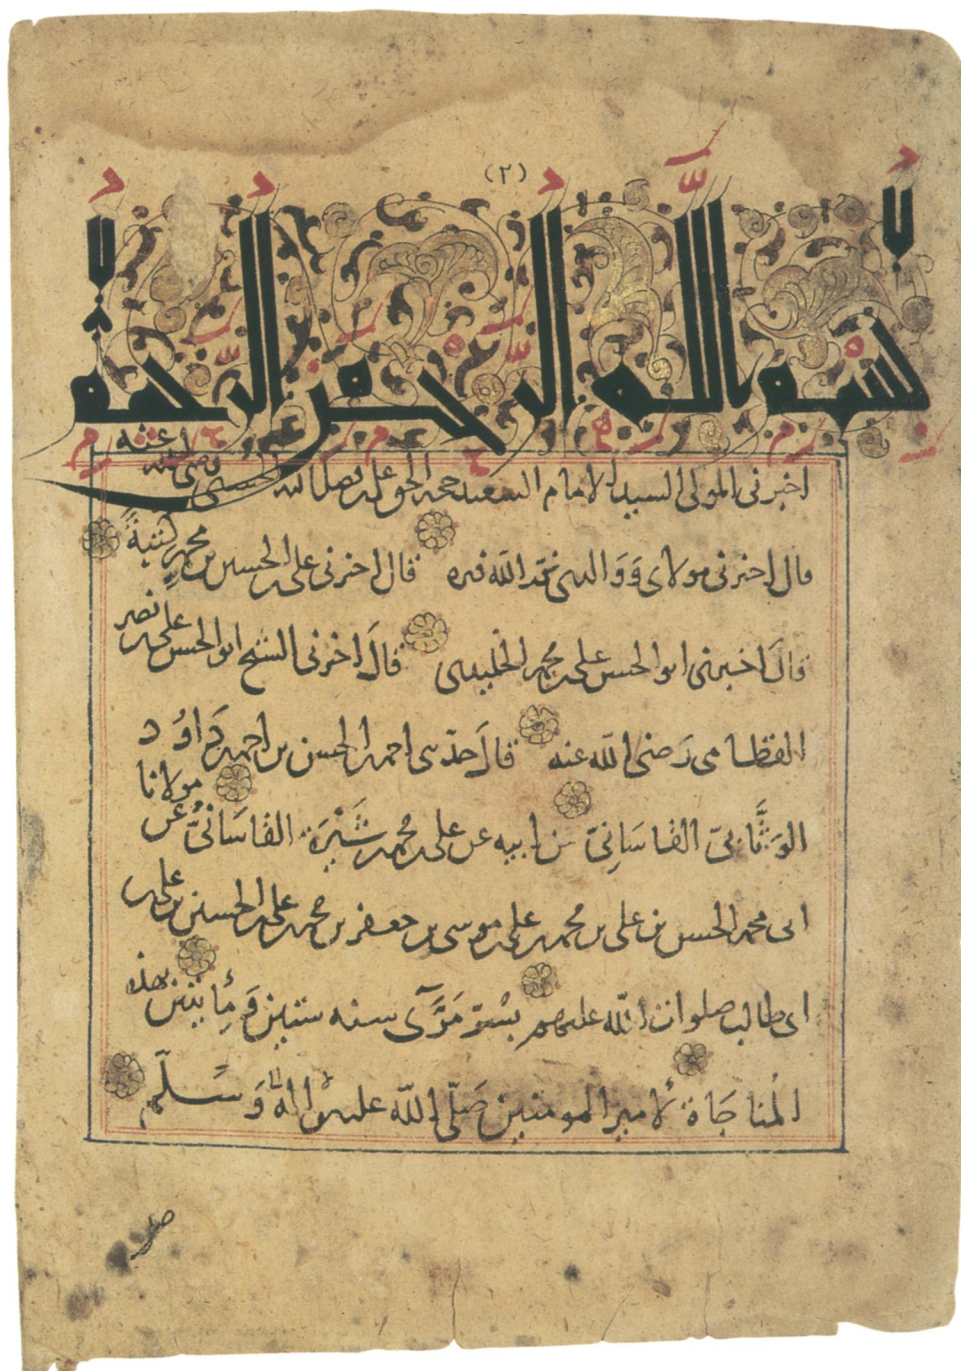 (٢)
بسم الله الرحمن الرحيم
اخبرنى المولى السيد الامام السعيد حجة الحق على بن فضل الله الحسنى رضى الله عنه
قال اخبرنى مولاى ووالدى قدّ الله قبره قال اخبرنى على بن الحسين بن محمد
قال اخبرنى ابو الحسن على بن محمد الخليدى قال اخبرنى الشيخ ابو الحسن على بن نصر
القطامى رضى الله عنه قال حدّثنى احمد بن الحسن بن احمد بن داوُد
الوثّابىّ القاسانىّ عن ابيه عن على بن محمد بن شَيْرَة القاسانىّ عن مولانا
ابى محمد الحسن بن على بن محمد بن على بن موسى بن جعفر بن محمد بن على بن الحسين بن على بن
ابى طالب صلوات الله عليهم بسُرّ مَرَّآى سنه ستين ومأيتين بهذه
المُناجاة لأمير المومنين صلّى الله عليه وآله وسلّم